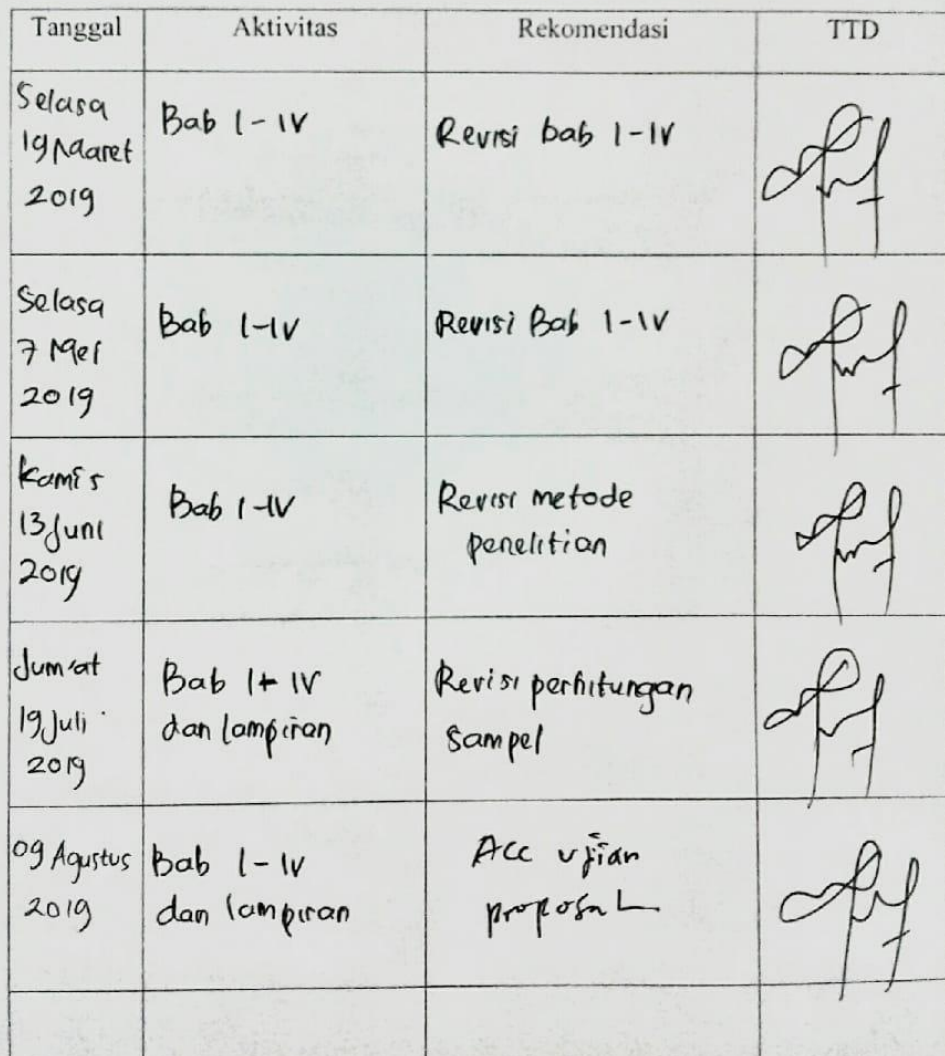 Tanggal Aktivitas Rekomendasi TTD
Selasa
19 Maaret
2019
Bab I - IV
Revisi bab I - IV
Selasa
7 Mei
2019
Bab I-IV
Revisi Bab I-IV
Kamis
13 Juni
2019
Bab I-IV
Revisi metode
penelitian
Jum'at
19 Juli
2019
Bab I - IV
dan lampiran
Revisi perhitungan
sampel
09 Agustus
2019
Bab I - IV
dan lampiran
Acc ujian
proposal